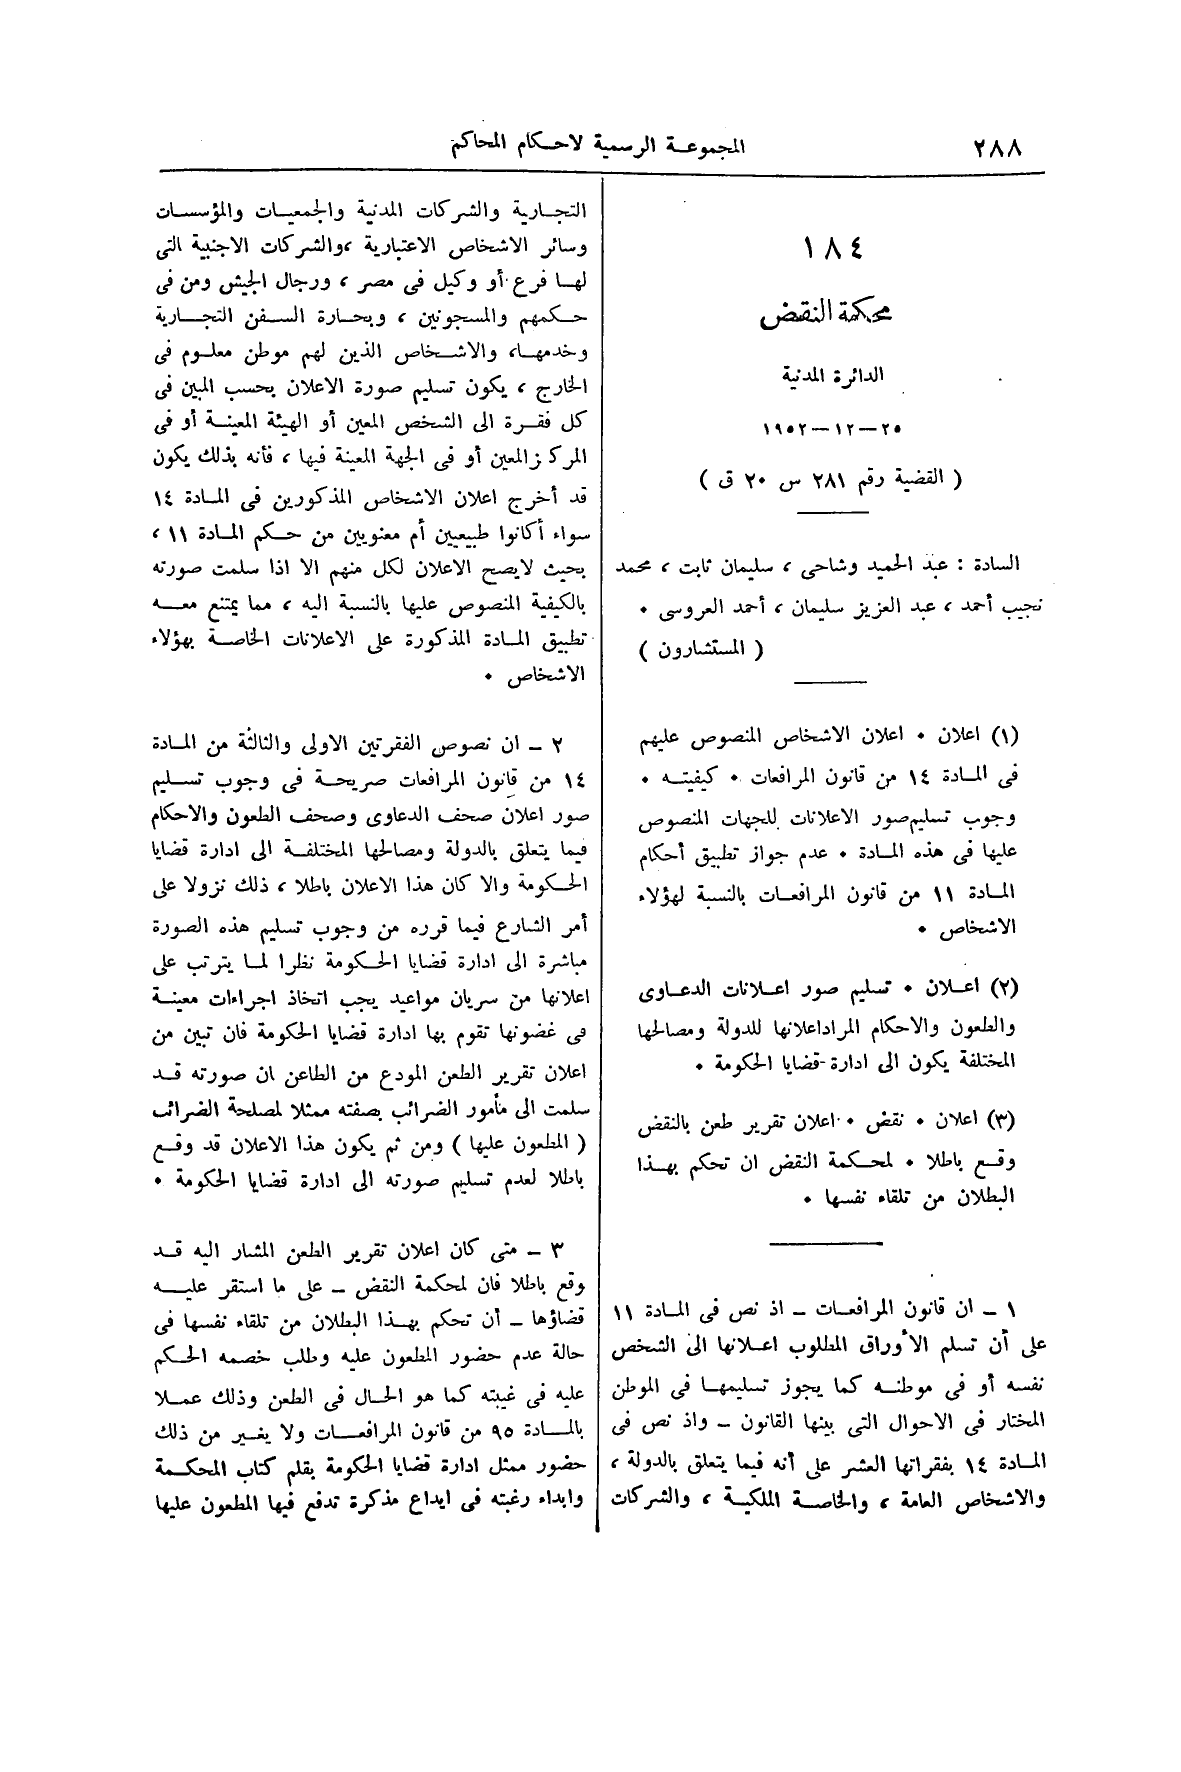 ٢٨٨
المجموعة الرسمية لاحكام المحاكم
١٨٤
محكمة النقض
الدائرة المدنية
٢٥-١٢-١٩٥٢
( القضية رقم ٢٨١ س ٢٠ ق )
السادة : عبد الحميد وشاحى ، سليمان ثابت ، محمد
نجيب أحمد ، عبد العزيز سليمان ، أحمد العروسى .
( المستشارون )
(١) اعلان . اعلان الاشخاص المنصوص عليهم
فى المادة ١٤ من قانون المرافعات . كيفيته .
وجوب تسليم صور الاعلانات للجهات المنصوص
عليها فى هذه المادة . عدم جواز تطبيق أحكام
المادة ١١ من قانون المرافعات بالنسبة لهؤلاء
الاشخاص .
(٢) اعلان . تسليم صور اعلانات الدعاوى
والطعون والاحكام المراد اعلانها للدولة ومصالحها
المختلفة يكون الى ادارة قضايا الحكومة .
(٣) اعلان . نقض . اعلان تقرير طعن بالنقض
وقع باطلا . لمحكمة النقض ان تحكم بهذا
البطلان من تلقاء نفسها .
١ - ان قانون المرافعات - اذ نص فى المادة ١١
على أن تسلم الأوراق المطلوب اعلانها الى الشخص
نفسه أو فى موطنه كما يجوز تسليمها فى الموطن
المختار فى الاحوال التى بينها القانون - واذ نص فى
المادة ١٤ بفقراتها العشر على أنه فيما يتعلق بالدولة ،
والاشخاص العامة ، والخاصة الملكية ، والشركات
التجارية والشركات المدنية والجمعيات والمؤسسات
وسائر الاشخاص الاعتبارية ، والشركات الاجنبية التى
لها فرع أو وكيل فى مصر ، ورجال الجيش ومن فى
حكمهم والمسجونين ، وبحارة السفن التجارية
وخدمها ، والاشخاص الذين لهم موطن معلوم فى
الخارج ، يكون تسليم صورة الاعلان بحسب المبين فى
كل فقرة الى الشخص المعين أو الهيئة المعينة أو فى
المركز المعين أو فى الجهة المعينة فيها ، فأنه بذلك يكون
قد أخرج اعلان الاشخاص المذكورين فى المادة ١٤
سواء أكانوا طبيعيين أم معنويين من حكم المادة ١١ ،
بحيث لايصح الاعلان لكل منهم الا اذا سلمت صورته
بالكيفية المنصوص عليها بالنسبة اليه ، مما يمتنع معه
تطبيق المادة المذكورة على الاعلانات الخاصة بهؤلاء
الاشخاص .
٢ - ان نصوص الفقرتين الاولى والثالثة من المادة
١٤ من قانون المرافعات صريحة فى وجوب تسليم
صور اعلان صحف الدعاوى وصحف الطعون والاحكام
فيما يتعلق بالدولة ومصالحها المختلفة الى ادارة قضايا
الحكومة والا كان هذا الاعلان باطلا ، ذلك نزولا على
أمر الشارع فيما قرره من وجوب تسليم هذه الصورة
مباشرة الى ادارة قضايا الحكومة نظرا لما يترتب على
اعلانها من سريان مواعيد يجب اتخاذ اجراءات معينة
فى غضونها تقوم بها ادارة قضايا الحكومة فان تبين من
اعلان تقرير الطعن المودع من الطاعن ان صورته قد
سلمت الى مأمور الضرائب بصفته ممثلا لمصلحة الضرائب
( المطعون عليها ) ومن ثم يكون هذا الاعلان قد وقع
باطلا لعدم تسليم صورته الى ادارة قضايا الحكومة .
٣ - متى كان اعلان تقرير الطعن المشار اليه قد
وقع باطلا فان لمحكمة النقض - على ما استقر عليه
قضاؤها - أن تحكم بهذا البطلان من تلقاء نفسها فى
حالة عدم حضور المطعون عليه وطلب خصمه الحكم
عليه فى غيبته كما هو الحال فى الطعن وذلك عملا
بالمادة ٩٥ من قانون المرافعات ولا يغير من ذلك
حضور ممثل ادارة قضايا الحكومة بقلم كتاب المحكمة
وابداء رغبته فى ايداع مذكرة تدفع فيها المطعون عليها